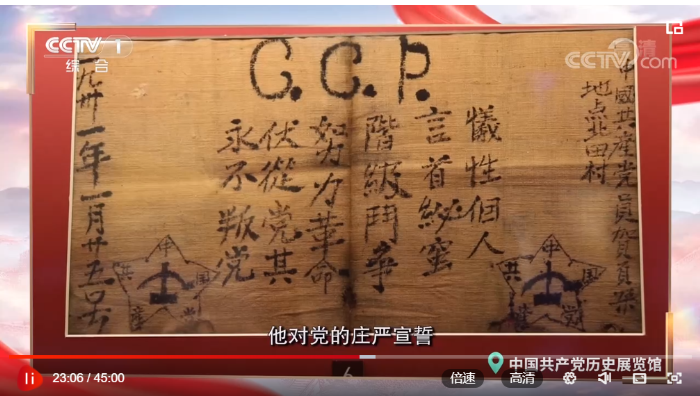 CCTV 1
综合
CCTV.com
高清
C.C.P.
中國共産党員賀頁
地点北田村
犠牲個人
言首秘蜜
階級鬥争
努力革命
伏從党其
永不叛党
一九卅一年一月廿五号
中國共產党
中國共產党
他对党的庄严宣誓
中国共产党历史展览馆
23:06 / 45:00
倍速
高清